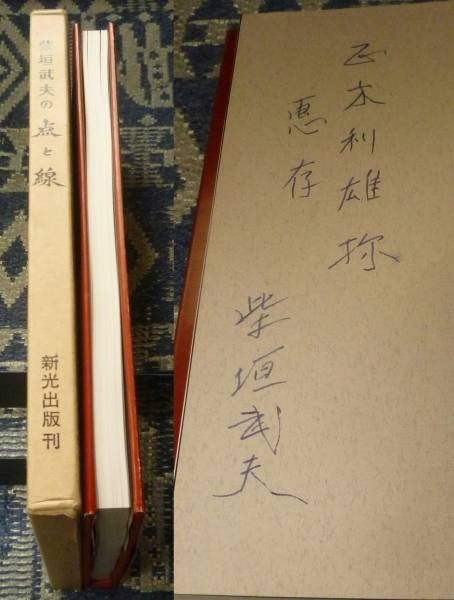 柴垣武夫の点と線
新光出版刊
正木利雄様
恵存
柴垣武夫